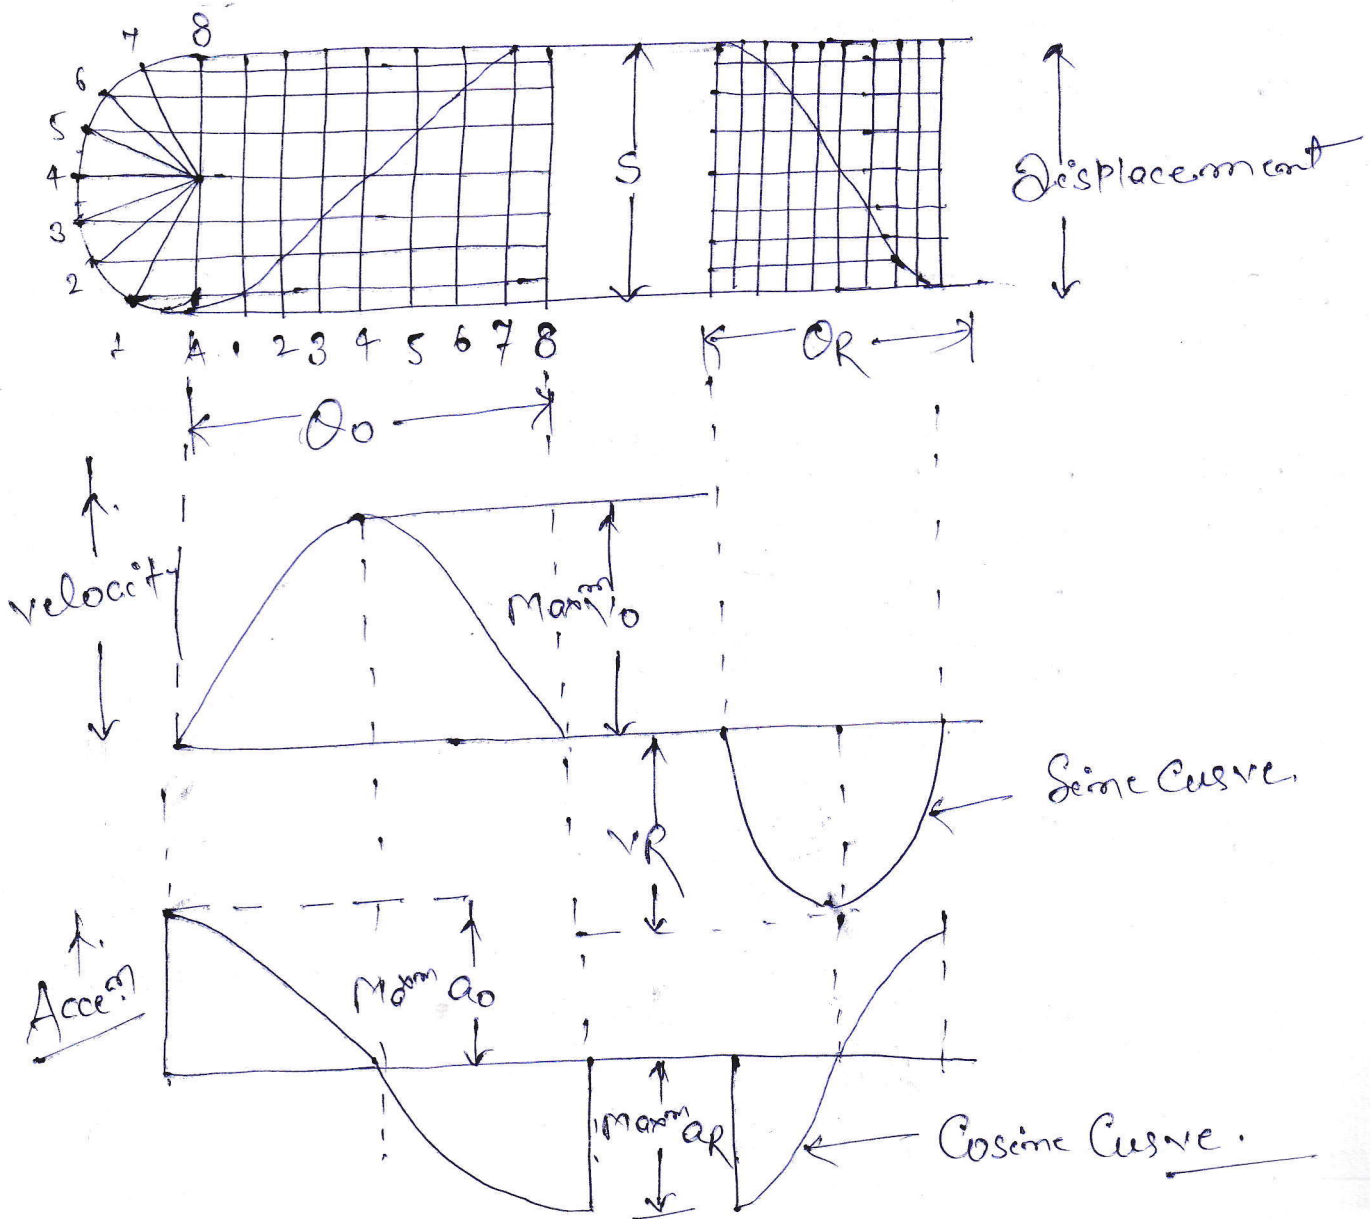 7 8
6
5
4
3
2
1 A 1 2 3 4 5 6 7 8
S
Displacement
θR
θo
velocity
Maxm Vo
VR
Sine Curve.
Accen
Maxm ao
Maxm aR
Cosine Curve.